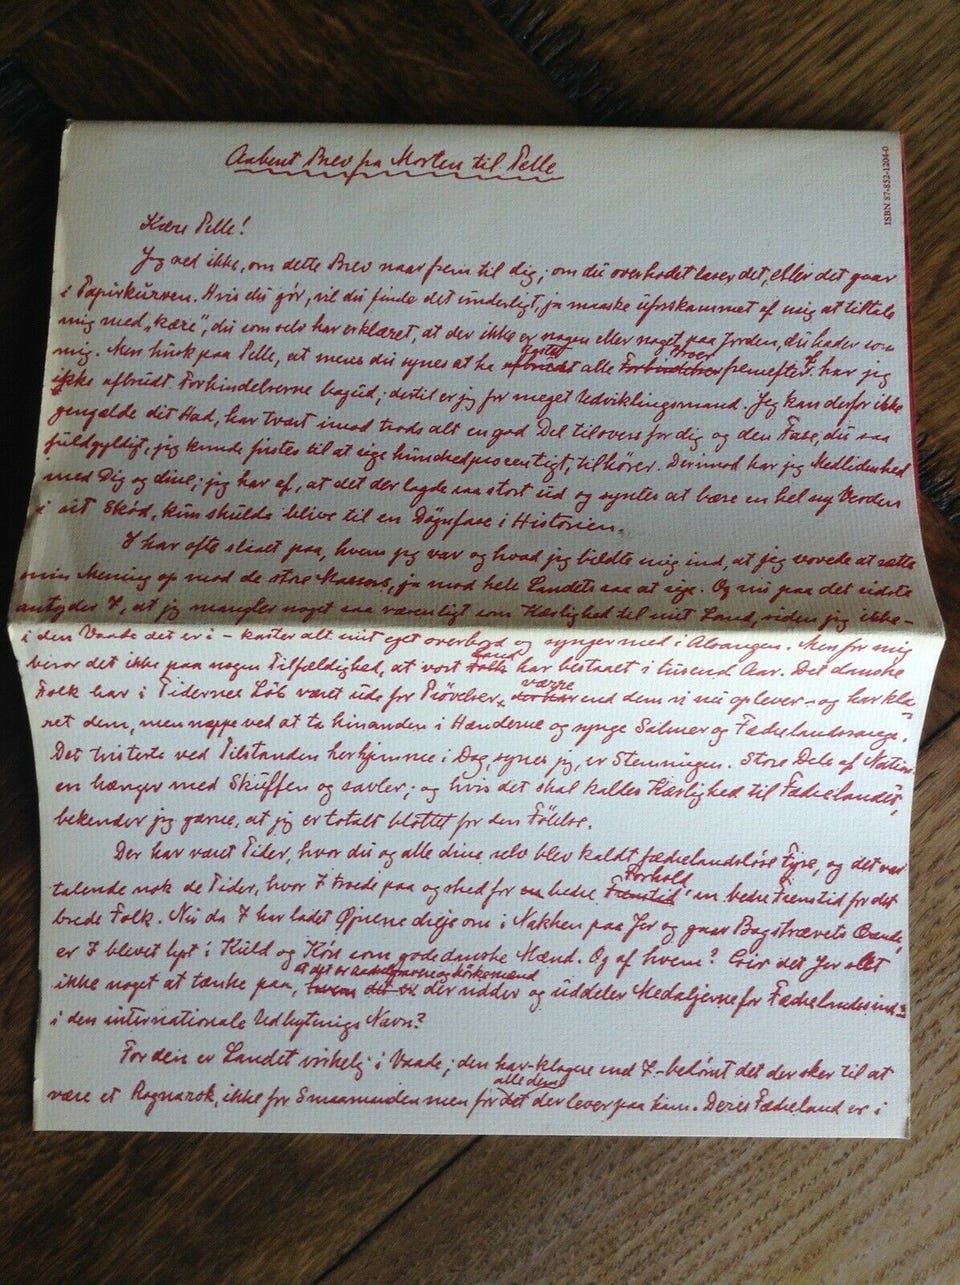 Aabent Brev fra Morten til Pelle
ISBN 87-852-1204-0
Kære Pelle!
Jeg ved ikke, om dette Brev naar frem til dig; om du overhodet læser det, eller det gaar
i Papirkurven. Hvis du gør, vil du finde det underligt, ja maaske uforskammet af mig at tiltale
mig med „kære“, du som selv har erklæret, at der ikke er nogen eller noget paa Jorden, du hader som
mig. Men husk paa Pelle, at mens du synes at ha afbrudt alle Forbindelser fremefter. har jeg
ikke afbrudt Forbindelserne bagud; dertil er jeg for meget Udviklingsmand. Jeg kan derfor ikke
gengælde dit Had, har tvært imod trods alt en god Del tilovers for dig og den Fase, du saa
fuldgyldigt, jeg kunde fristes til at sige hundredprocentigt, tilhører. Derimod har jeg Medlidenhed
med Dig og dine; jeg har af, at det der lagde saa stort ud og syntes at bære en hel ny Verden
i sit Skød, kun skulde blive til en Døgnfase i Historien.
I har ofte slaaet paa, hvem jeg var og hvad jeg bildte mig ind, at jeg vovede at sætte
min Mening op mod de store Massers, ja mod hele Landets saa at sige. Og nu paa det sidste
antyder I, at jeg mangler noget saa væsenligt som Kærlighed til mit Land, siden jeg ikke –
i den Vaade det er i – kaster alt mit eget overbord og synger med i Alsangen. Men for mig
beror det ikke paa nogen Tilfældighed, at vort Folk Land har bestaaet i tusend Aar. Det danske
Folk har i Tidernes Løb været ude for Prøvelser, værre end dem vi nu oplever – og har kla-
ret dem, men næppe ved at ta hinanden i Hænderne og synge Salmer og Fædrelandssange.
Det tristeste ved Tilstanden herhjemme i Dag, synes jeg, er Stemningen. Store Dele af Nation-
en hænger med Skuffen og savler; og hvis det skal kaldes Kærlighed til Fædrelandet,
bekender jeg gærne, at jeg er totalt blottet for den Følelse.
Der har været Tider, hvor du og alle dine selv blev kaldt fædrelandsløse Fyre, og det var
talende nok de Tider, hvor I troede paa og sled for en bedre Fremtid Forhold, en bedre Fremtid for det
brede Folk. Nu da I har ladet Øjnene dreje om i Nakken paa Jer og gaar Bagstrævets Ærinde,
er I blevet lyst i Kuld og Køn som gode danske Mænd. Og af hvem? Gir det Jer slet
ikke noget at tænke paa, at det er der sidder og uddeler Medaljerne for Fædrelandssind
i den internationale Udbytnings Navn?
For dem er Landet virkelig i Vaade; den har – klagene ved I – behørt det der sker til at
være et Ragnarok, ikke for Smaamanden men for alle dem der lever paa ham. Deres Fædreland er i